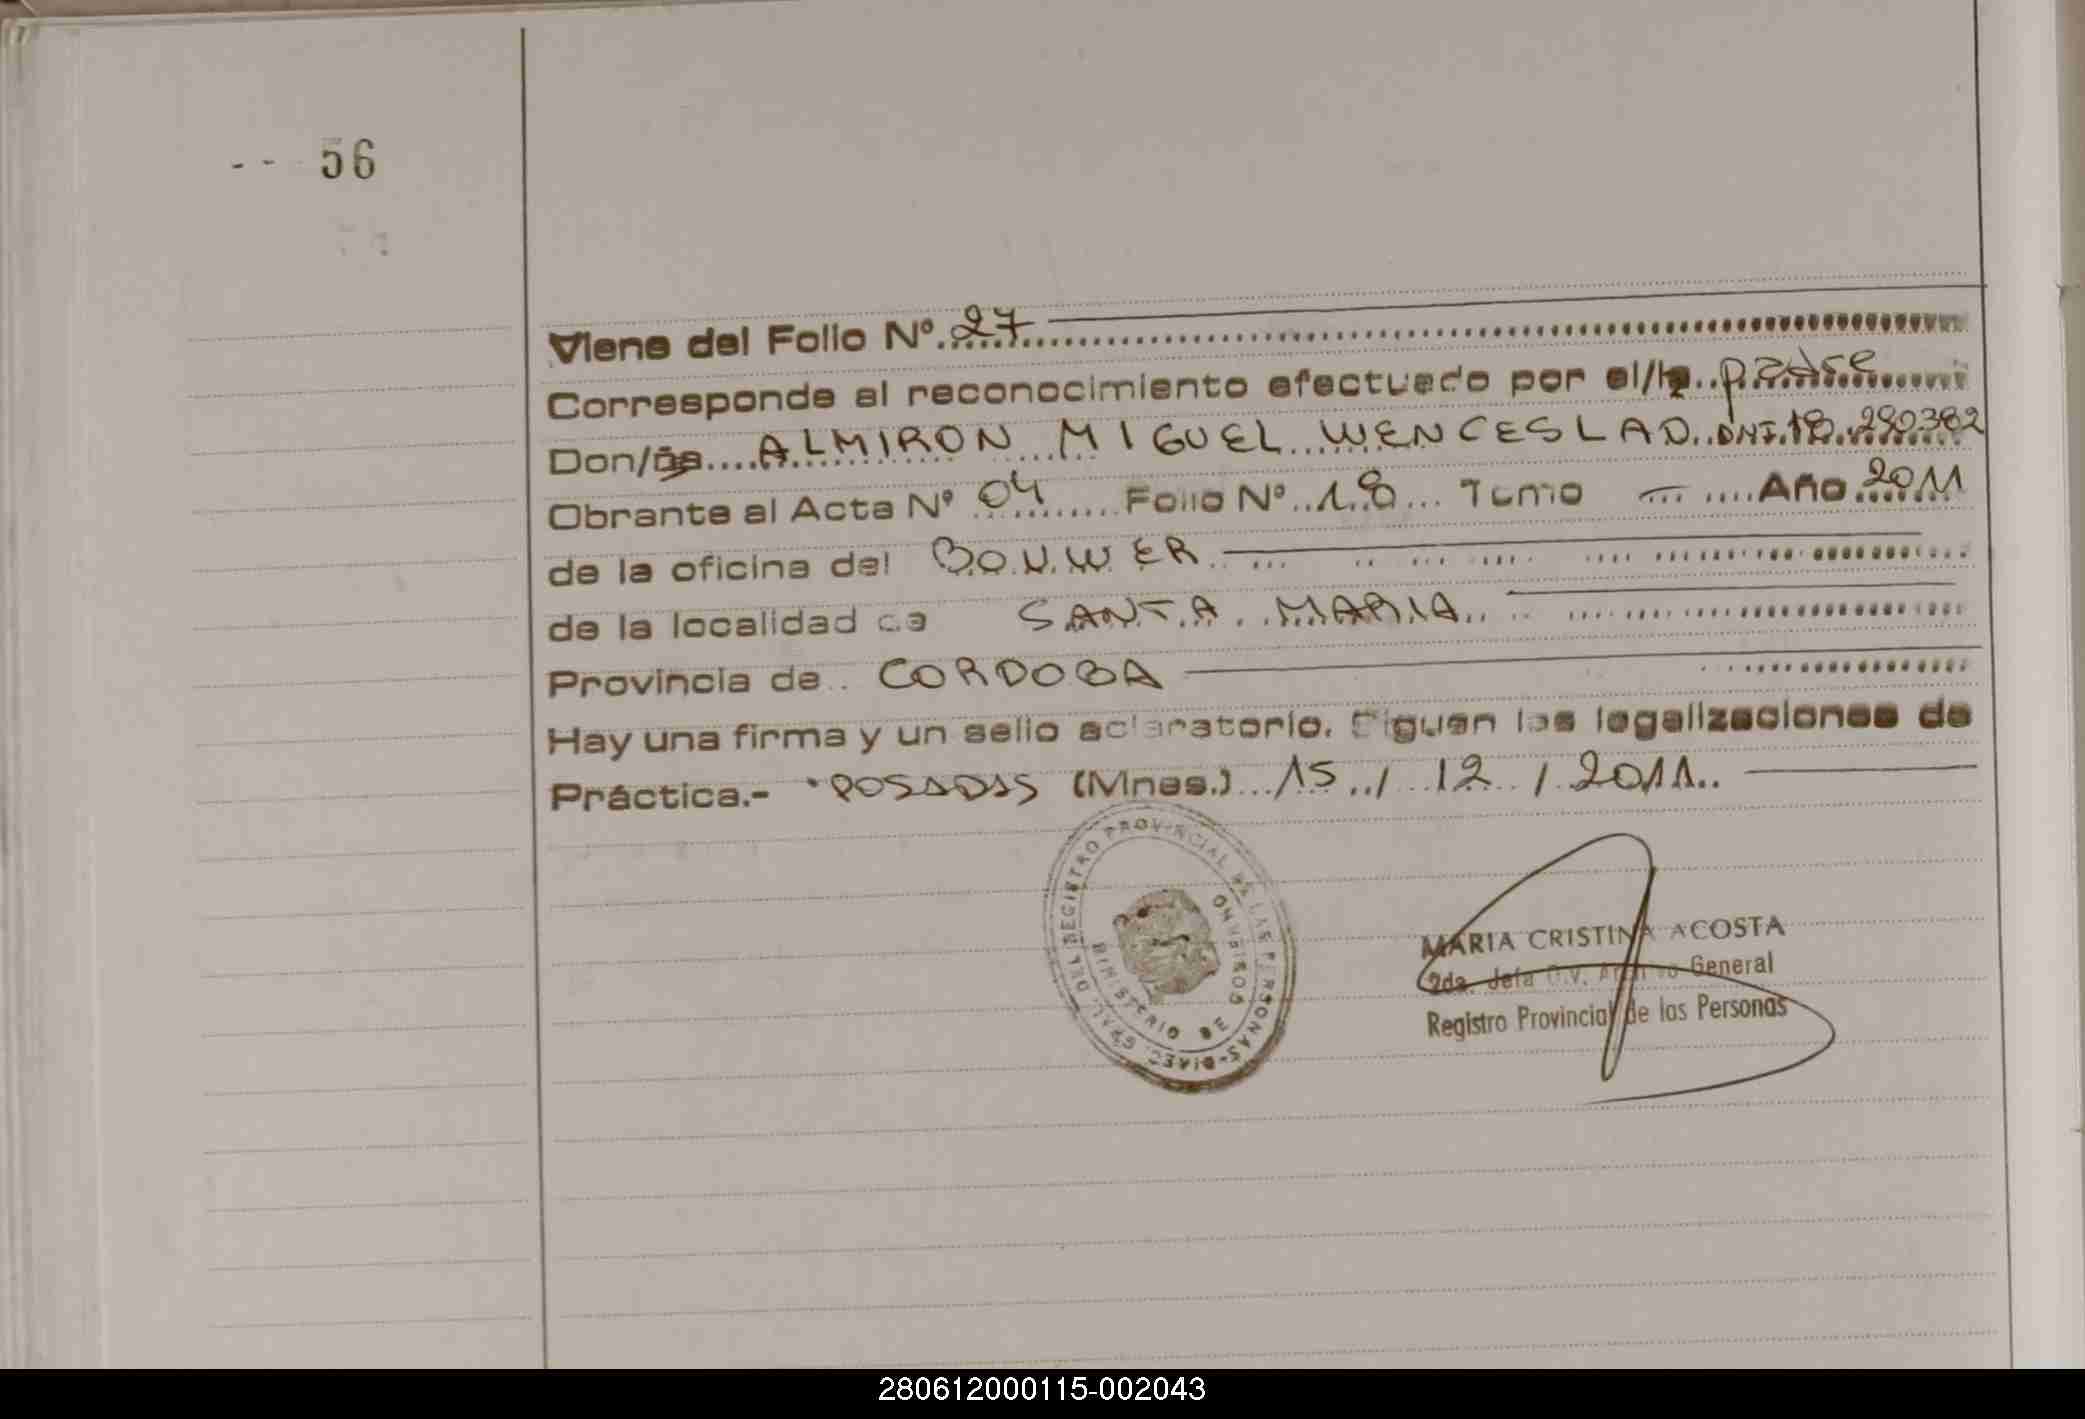 -- 56
Viene del Folio Nº 27
Corresponde al reconocimiento efectuado por el/la padre
Don/ña ALMIRON MIGUEL WENCESLAO DNI 18.290382
Obrante al Acta Nº 04 Folio Nº 18 Tomo — Año 2011
de la oficina del BOUWER
de la localidad de SANTA MARIA
Provincia de CORDOBA
Hay una firma y un sello aclaratorio. Siguen las legalizaciones de
Práctica.- POSADAS (Mnes.) 15 / 12 / 2011
DIREC. GRAL. DEL REGISTRO PROVINCIAL DE LAS PERSONAS
MINISTERIO DE GOBIERNO
MARIA CRISTINA ACOSTA
2da. Jefa D.V. Archivo General
Registro Provincial de las Personas
280612000115-002043